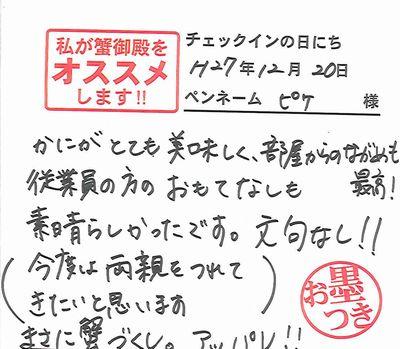 私が蟹御殿を
オススメ
します!!
チェックインの日にち
H27年12月20日
ペンネーム ピケ 様
かにがとても美味しく、部屋からのながめも
最高!
従業員の方のおもてなしも
素晴らしかったです。文句なし!!
(今度は両親をつれて
きたいと思います)
まさに蟹づくし。アッパレ!!
お墨つき